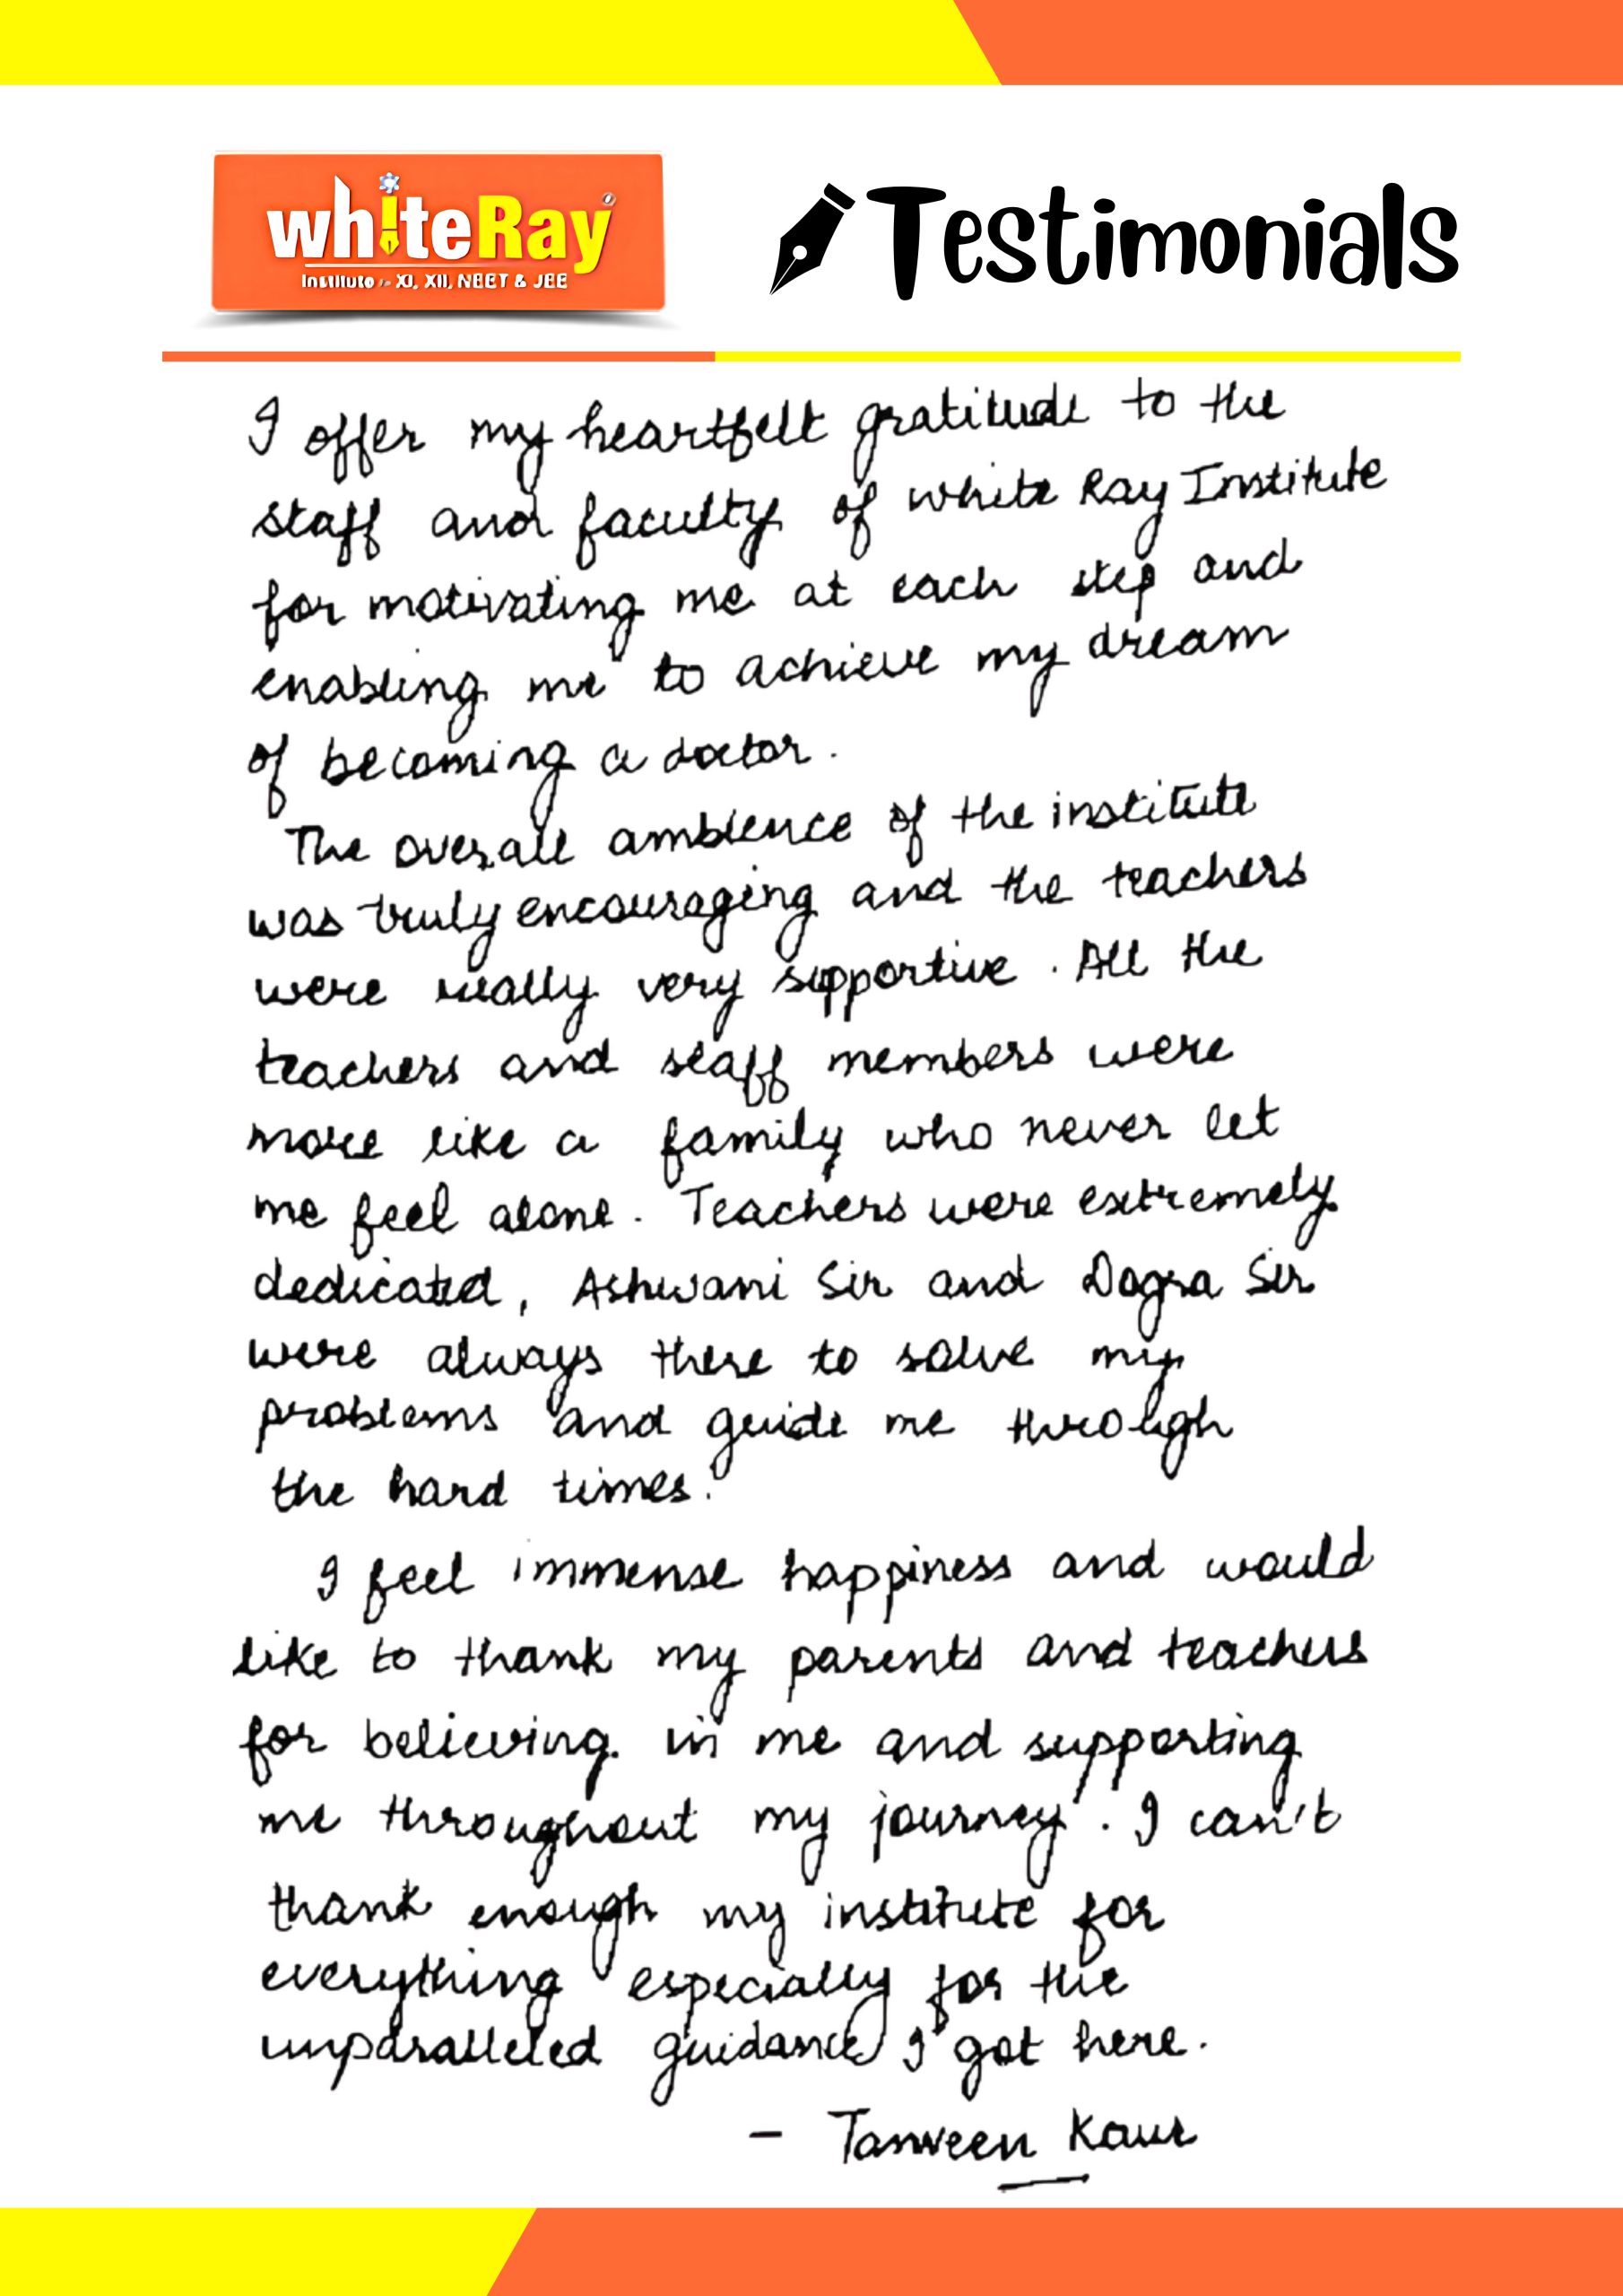 whiteRay
Institute :- XI, XII, NEET & JEE
Testimonials
I offer my heartfelt gratitude to the
staff and faculty of white Ray Institute
for motivating me at each step and
enabling me to achieve my dream
of becoming a doctor.
The overall ambience of the institute
was truly encouraging and the teachers
were really very supportive. All the
teachers and staff members were
more like a family who never let
me feel alone. Teachers were extremely
dedicated, Ashwani Sir and Dogra Sir
were always there to solve my
problems and guide me through
the hard times.
I feel immense happiness and would
like to thank my parents and teachers
for believing in me and supporting
me throughout my journey. I can't
thank enough my institute for
everything especially for the
unparalleled guidance I got here.
- Tanveen Kaur